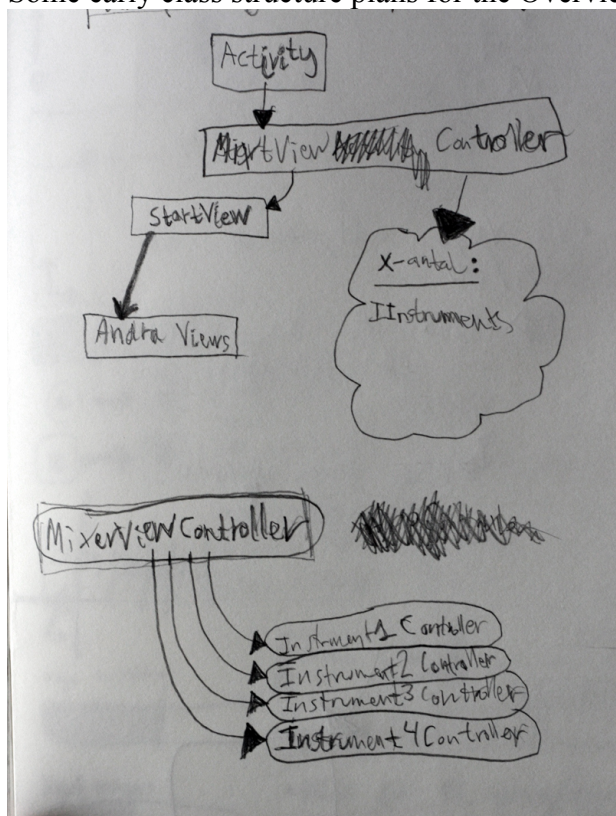 Some early class structure plans for the
Activity
View Controller
StartView
X-antal:
IInstruments
Andra Views
MixerViewController
Instrument1 Controller
Instrument2 Controller
Instrument3 Controller
Instrument4 Controller